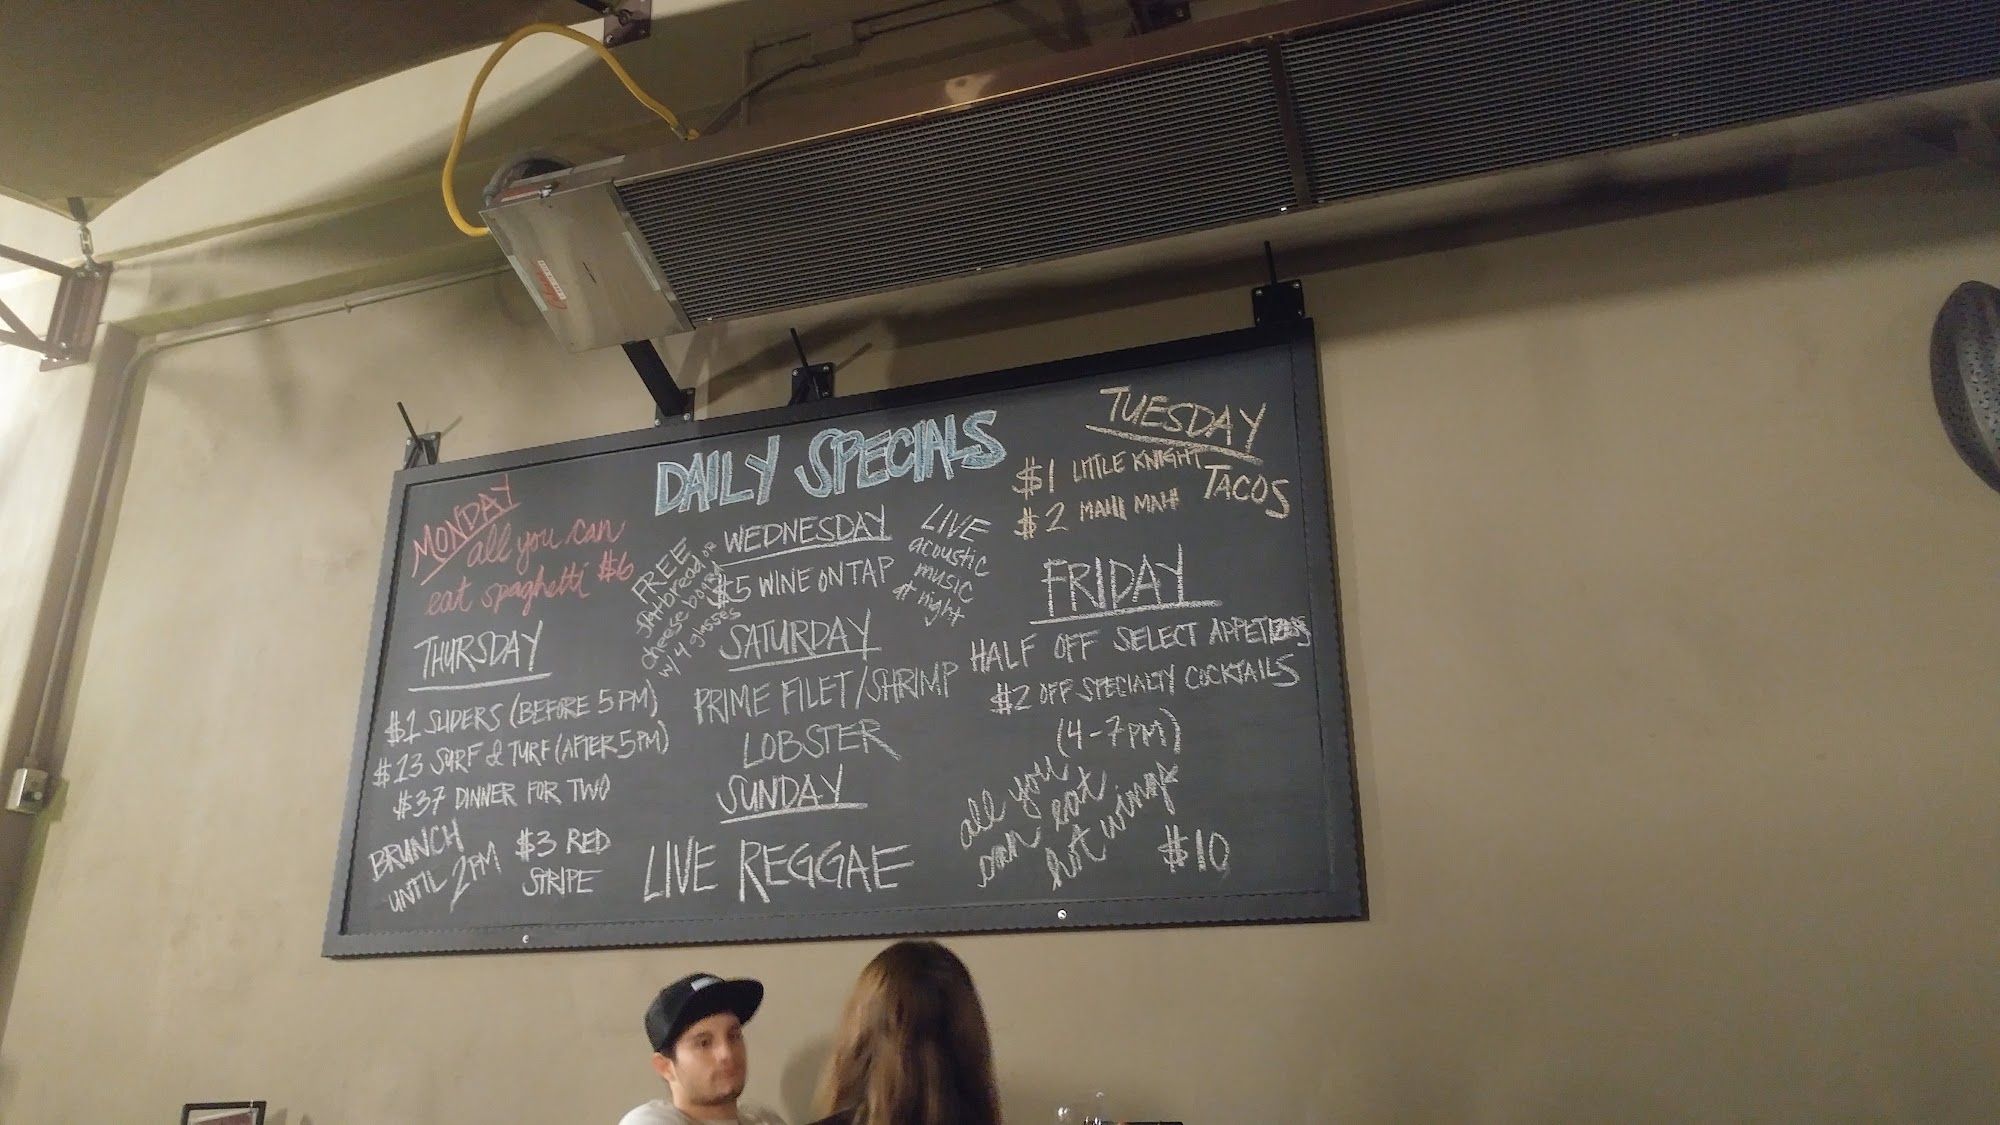 DAILY SPECIALS
MONDAY
all you can
eat spaghetti $6
TUESDAY
$1 LITTLE KNIGHT
TACOS
$2 MAHI MAHI
WEDNESDAY
$5 WINE ON TAP
FREE
flatbread or
cheese board
w/ 4 glasses
LIVE
acoustic
music
at night
THURSDAY
$1 SLIDERS (BEFORE 5 PM)
$13 SURF & TURF (AFTER 5PM)
$37 DINNER FOR TWO
FRIDAY
HALF OFF SELECT APPETIZERS
$2 OFF SPECIALTY COCKTAILS
(4-7PM)
SATURDAY
PRIME FILET/SHRIMP
LOBSTER
SUNDAY
BRUNCH
UNTIL 2PM
$3 RED
STRIPE
LIVE REGGAE
all you
can eat
hot wings
$10